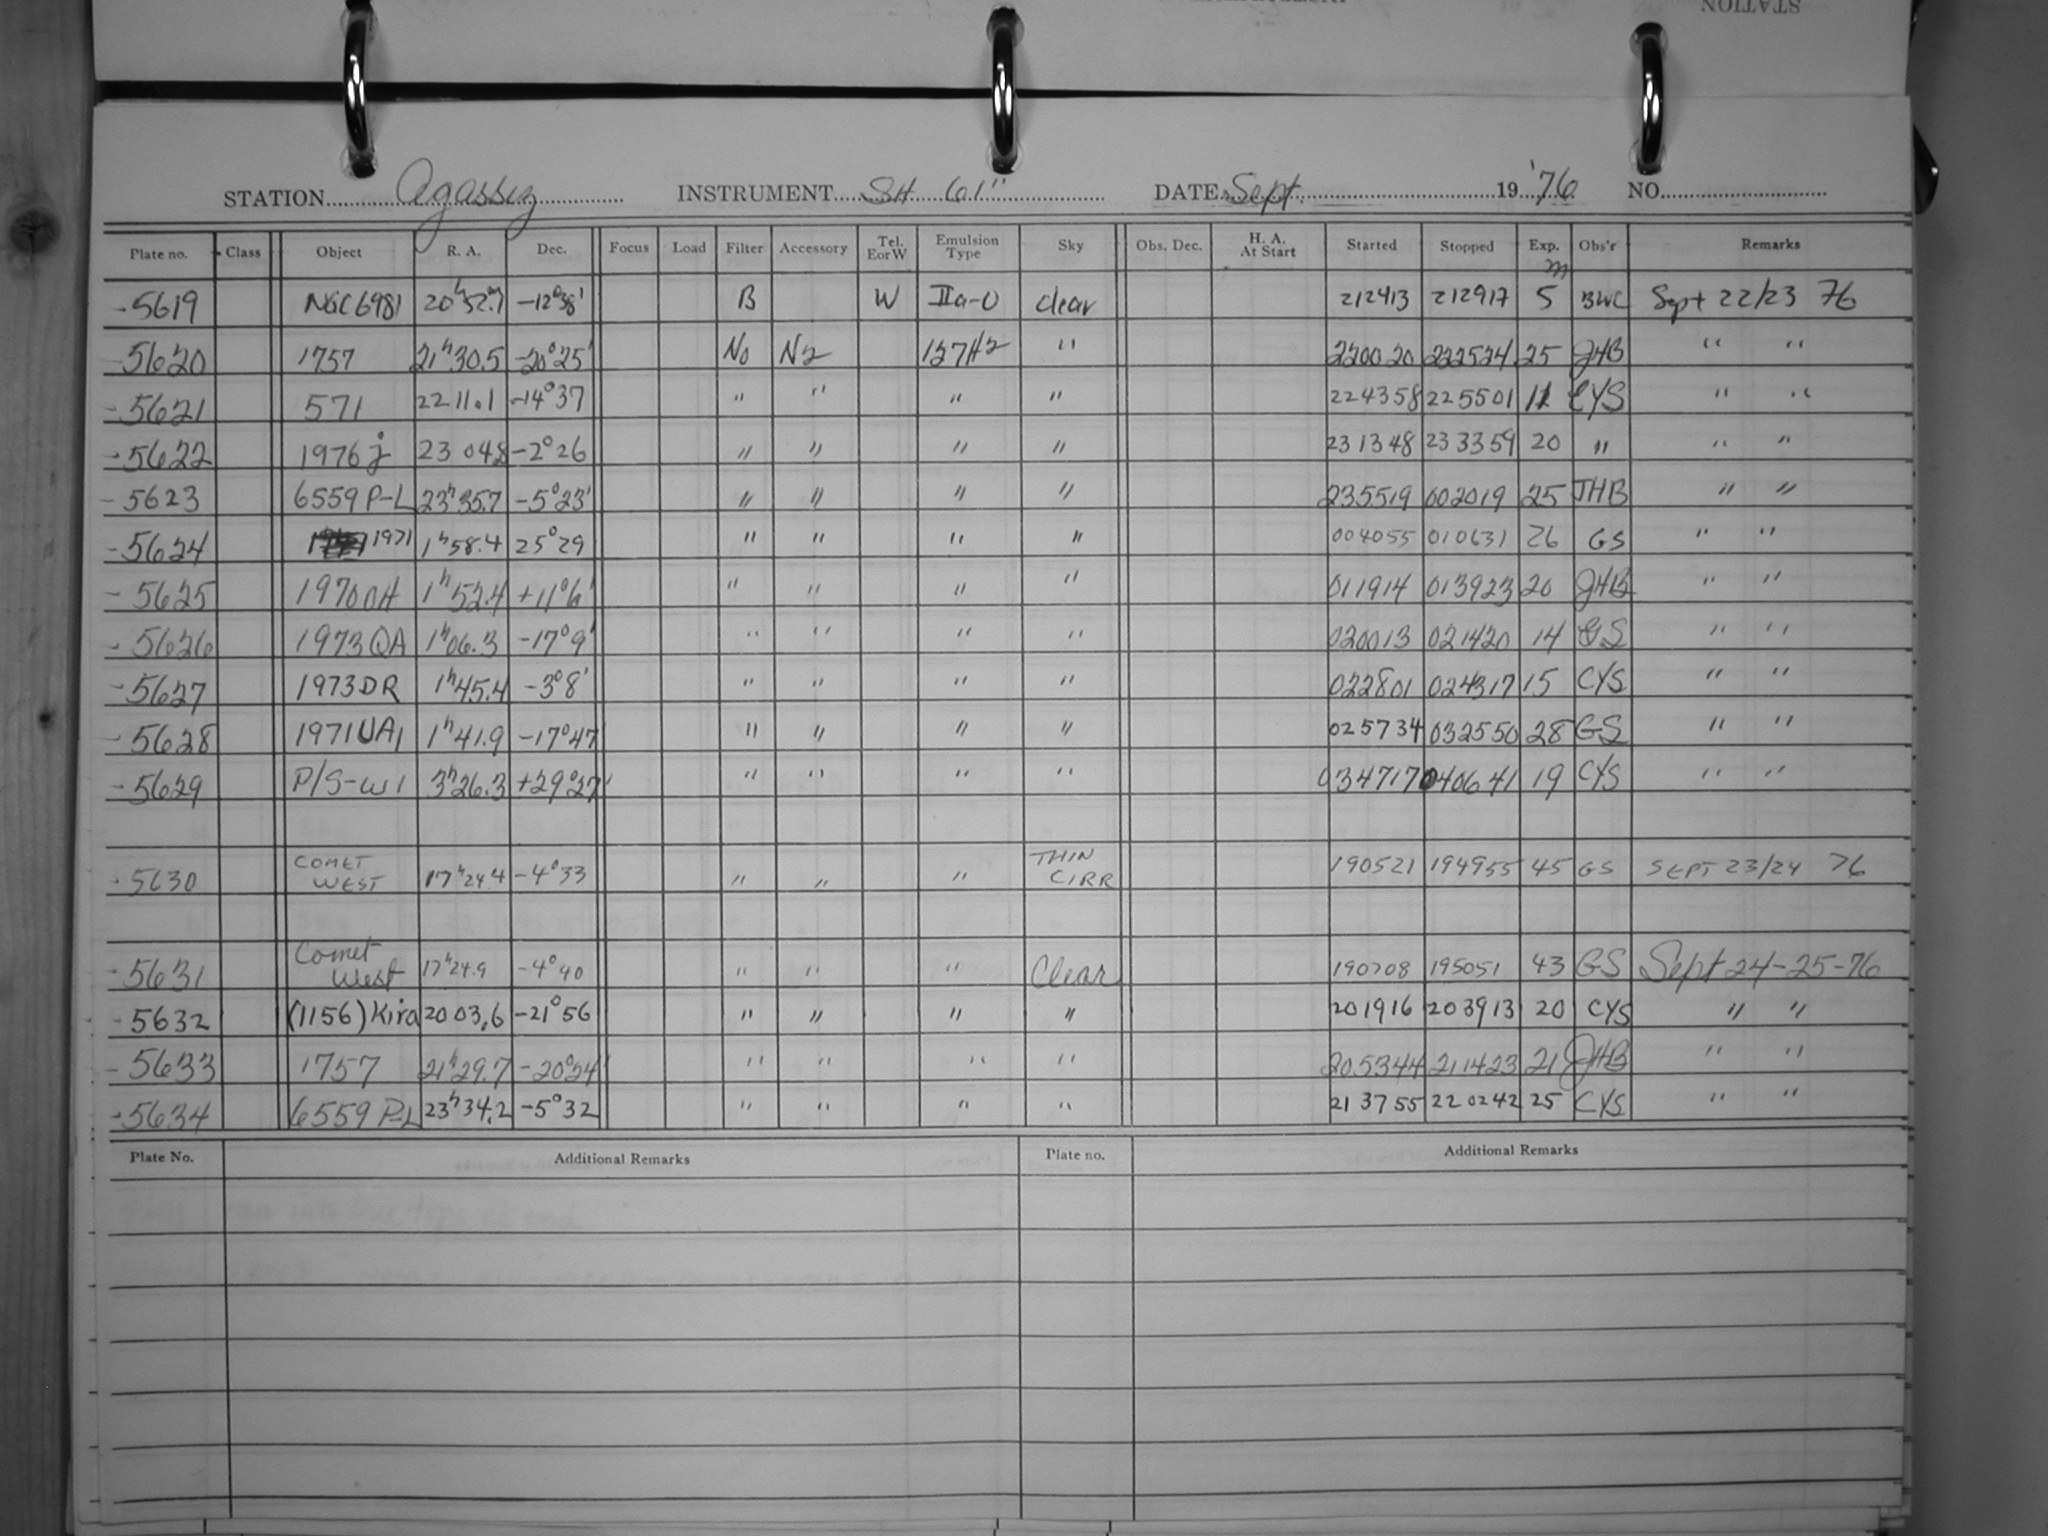 STATION Agassiz INSTRUMENT SH 61" DATE Sept. 19 '76 NO.
Plate no. Class Object R. A. Dec. Focus Load Filter Accessory Tel. E or W Emulsion Type Sky Obs. Dec. H. A. At Start Started Stopped Exp. m Obs'r Remarks
-5619 NGC6981 20h52.m7 -12°38' B W IIa-O clear 212413 212917 5 BWC Sept 22/23 76
-5620 1757 21h30.5 -20°25' No N2 127H2 " 220020 222524 25 JHB " "
-5621 571 2211.1 -14°37 " " " " 224358 225501 11 CYS " "
-5622 1976j 23 048 -2°26 " " " " 231348 233359 20 " " "
-5623 6559 P-L 23h35.7 -5°23' " " " " 235519 002019 25 JHB " "
-5624 1971 1h58.4 25°29 " " " " 004055 010631 26 GS " "
-5625 1970 1h52.4 +11°6' " " " " 011914 013923 20 JHB " "
-5626 1973QA 1h06.3 -17°9' " " " " 020013 021420 14 GS " "
-5627 1973DR 1h45.4 -3°8' " " " " 022801 024317 15 CYS " "
-5628 1971UA1 1h41.9 -17°47' " " " " 025734 032550 28 GS " "
-5629 P/S-W1 3h26.3 +29°27' " " " " 034717 040641 19 CYS " "
-5630 COMET WEST 17h24.4 -4°33 " " " THIN CIRR 190521 194955 45 GS SEPT 23/24 76
-5631 Comet West 17h24.9 -4°40 " " " Clear 190708 195051 43 GS Sept 24-25-76
-5632 (1156) Kira 2003.6 -21°56 " " " " 201916 203913 20 CYS " "
-5633 1757 21h29.7 -20°24' " " " " 205344 211423 21 JHB " "
-5634 6559 P-L 23h34.2 -5°32 " " " " 213755 220242 25 CYS " "
Plate No. Additional Remarks Plate no. Additional Remarks